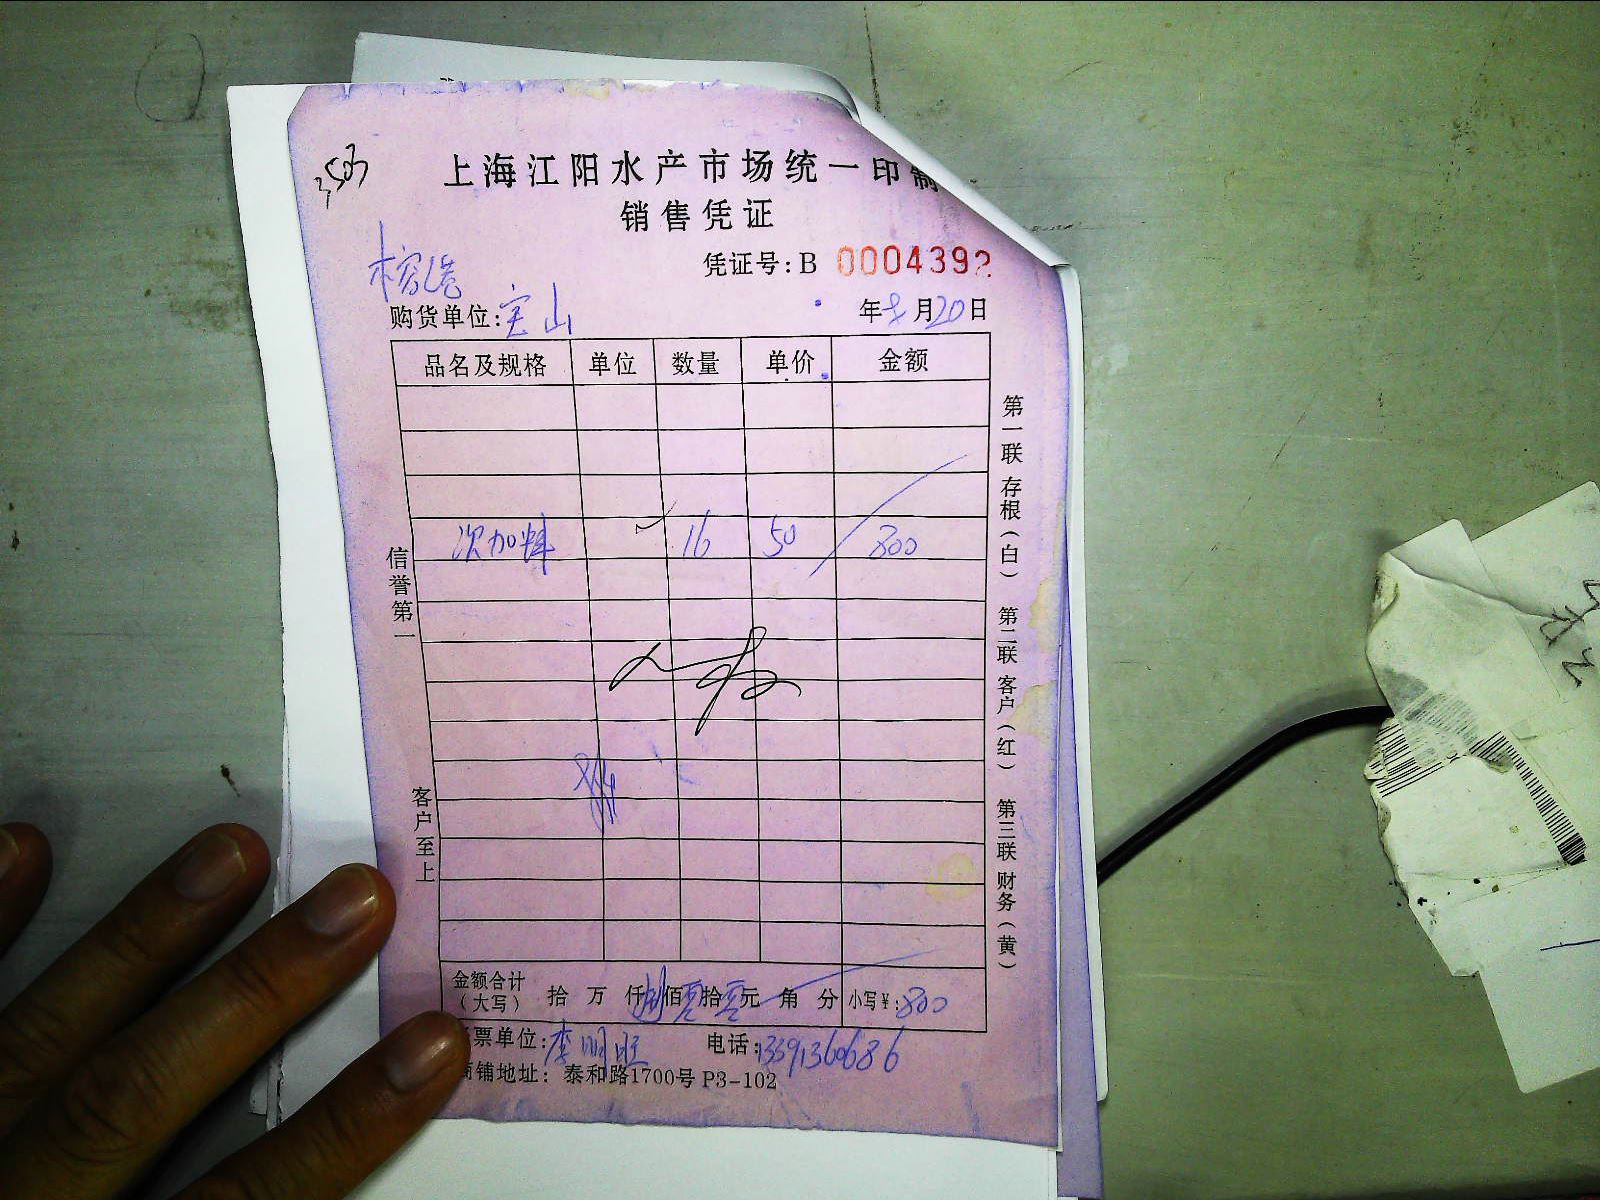 3503
上海江阳水产市场统一印制
销售凭证
凭证号:B 0004392
榕港
购货单位:宝山 年8月20日
品名及规格 单位 数量 单价 金额
次加料 16 50 800
信誉第一
客户至上
第一联 存根(白) 第二联 客户(红) 第三联 财务(黄)
金额合计(大写) 拾 万 仟 捌佰零拾零元 角 分 小写¥:800
票单位:李明旺 电话:13391360686
商铺地址: 泰和路1700号 P3-102